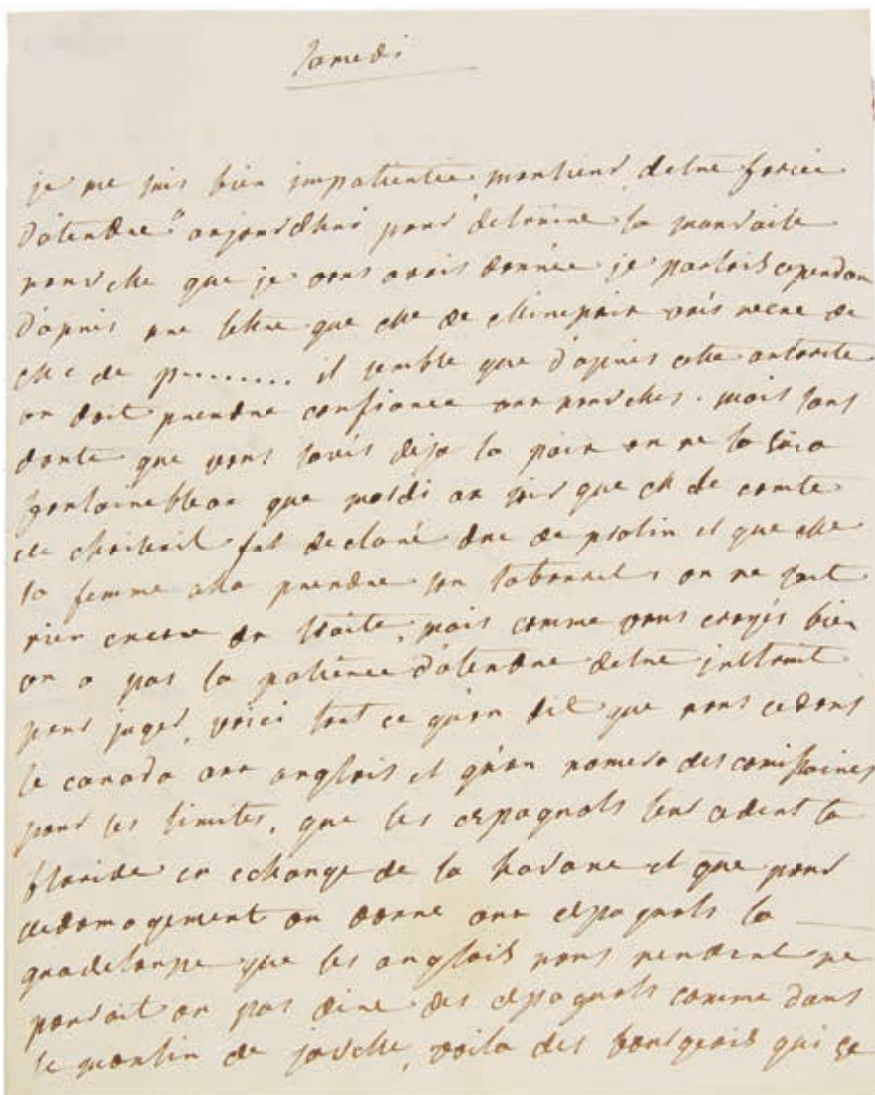 Samedi
je me suis bien impatientée monsieur detre forcée
d'atendre a aujourdhui pour detruire la mauvaise
nouvelle que je vous avois donnée je parlois cependan
d'apres une lettre que me de mirepoix avés recue de
me de p......... il semble que d'apres cette autorité
on doit prendre confiance aux nouvelles. mais sans
doute que vous savés deja la paix on ne la scu a
fontainebleau que mardi au soir que m de comte
de choiseul fut declaré duc de praslin et que me
sa femme alla prendre son tabouret, on ne sait
rien encore du traité, mais comme vous croyés bien
on a pas la patience d'atendre detre instruit
pour juger, voici tout ce qu'on dit que nous cedons
le canada aux anglois et qu'on nomera des comissaires
pour les limites, que les espagnols leur cedent la
floride en echange de la havane et que pour
dedomagement on donne aux espagnols la
guadeloupe que les anglois nous rendent ne
pouroit on pas dire des espagnols comme dans
le moulin de javelle, voila des bourgeois qui se